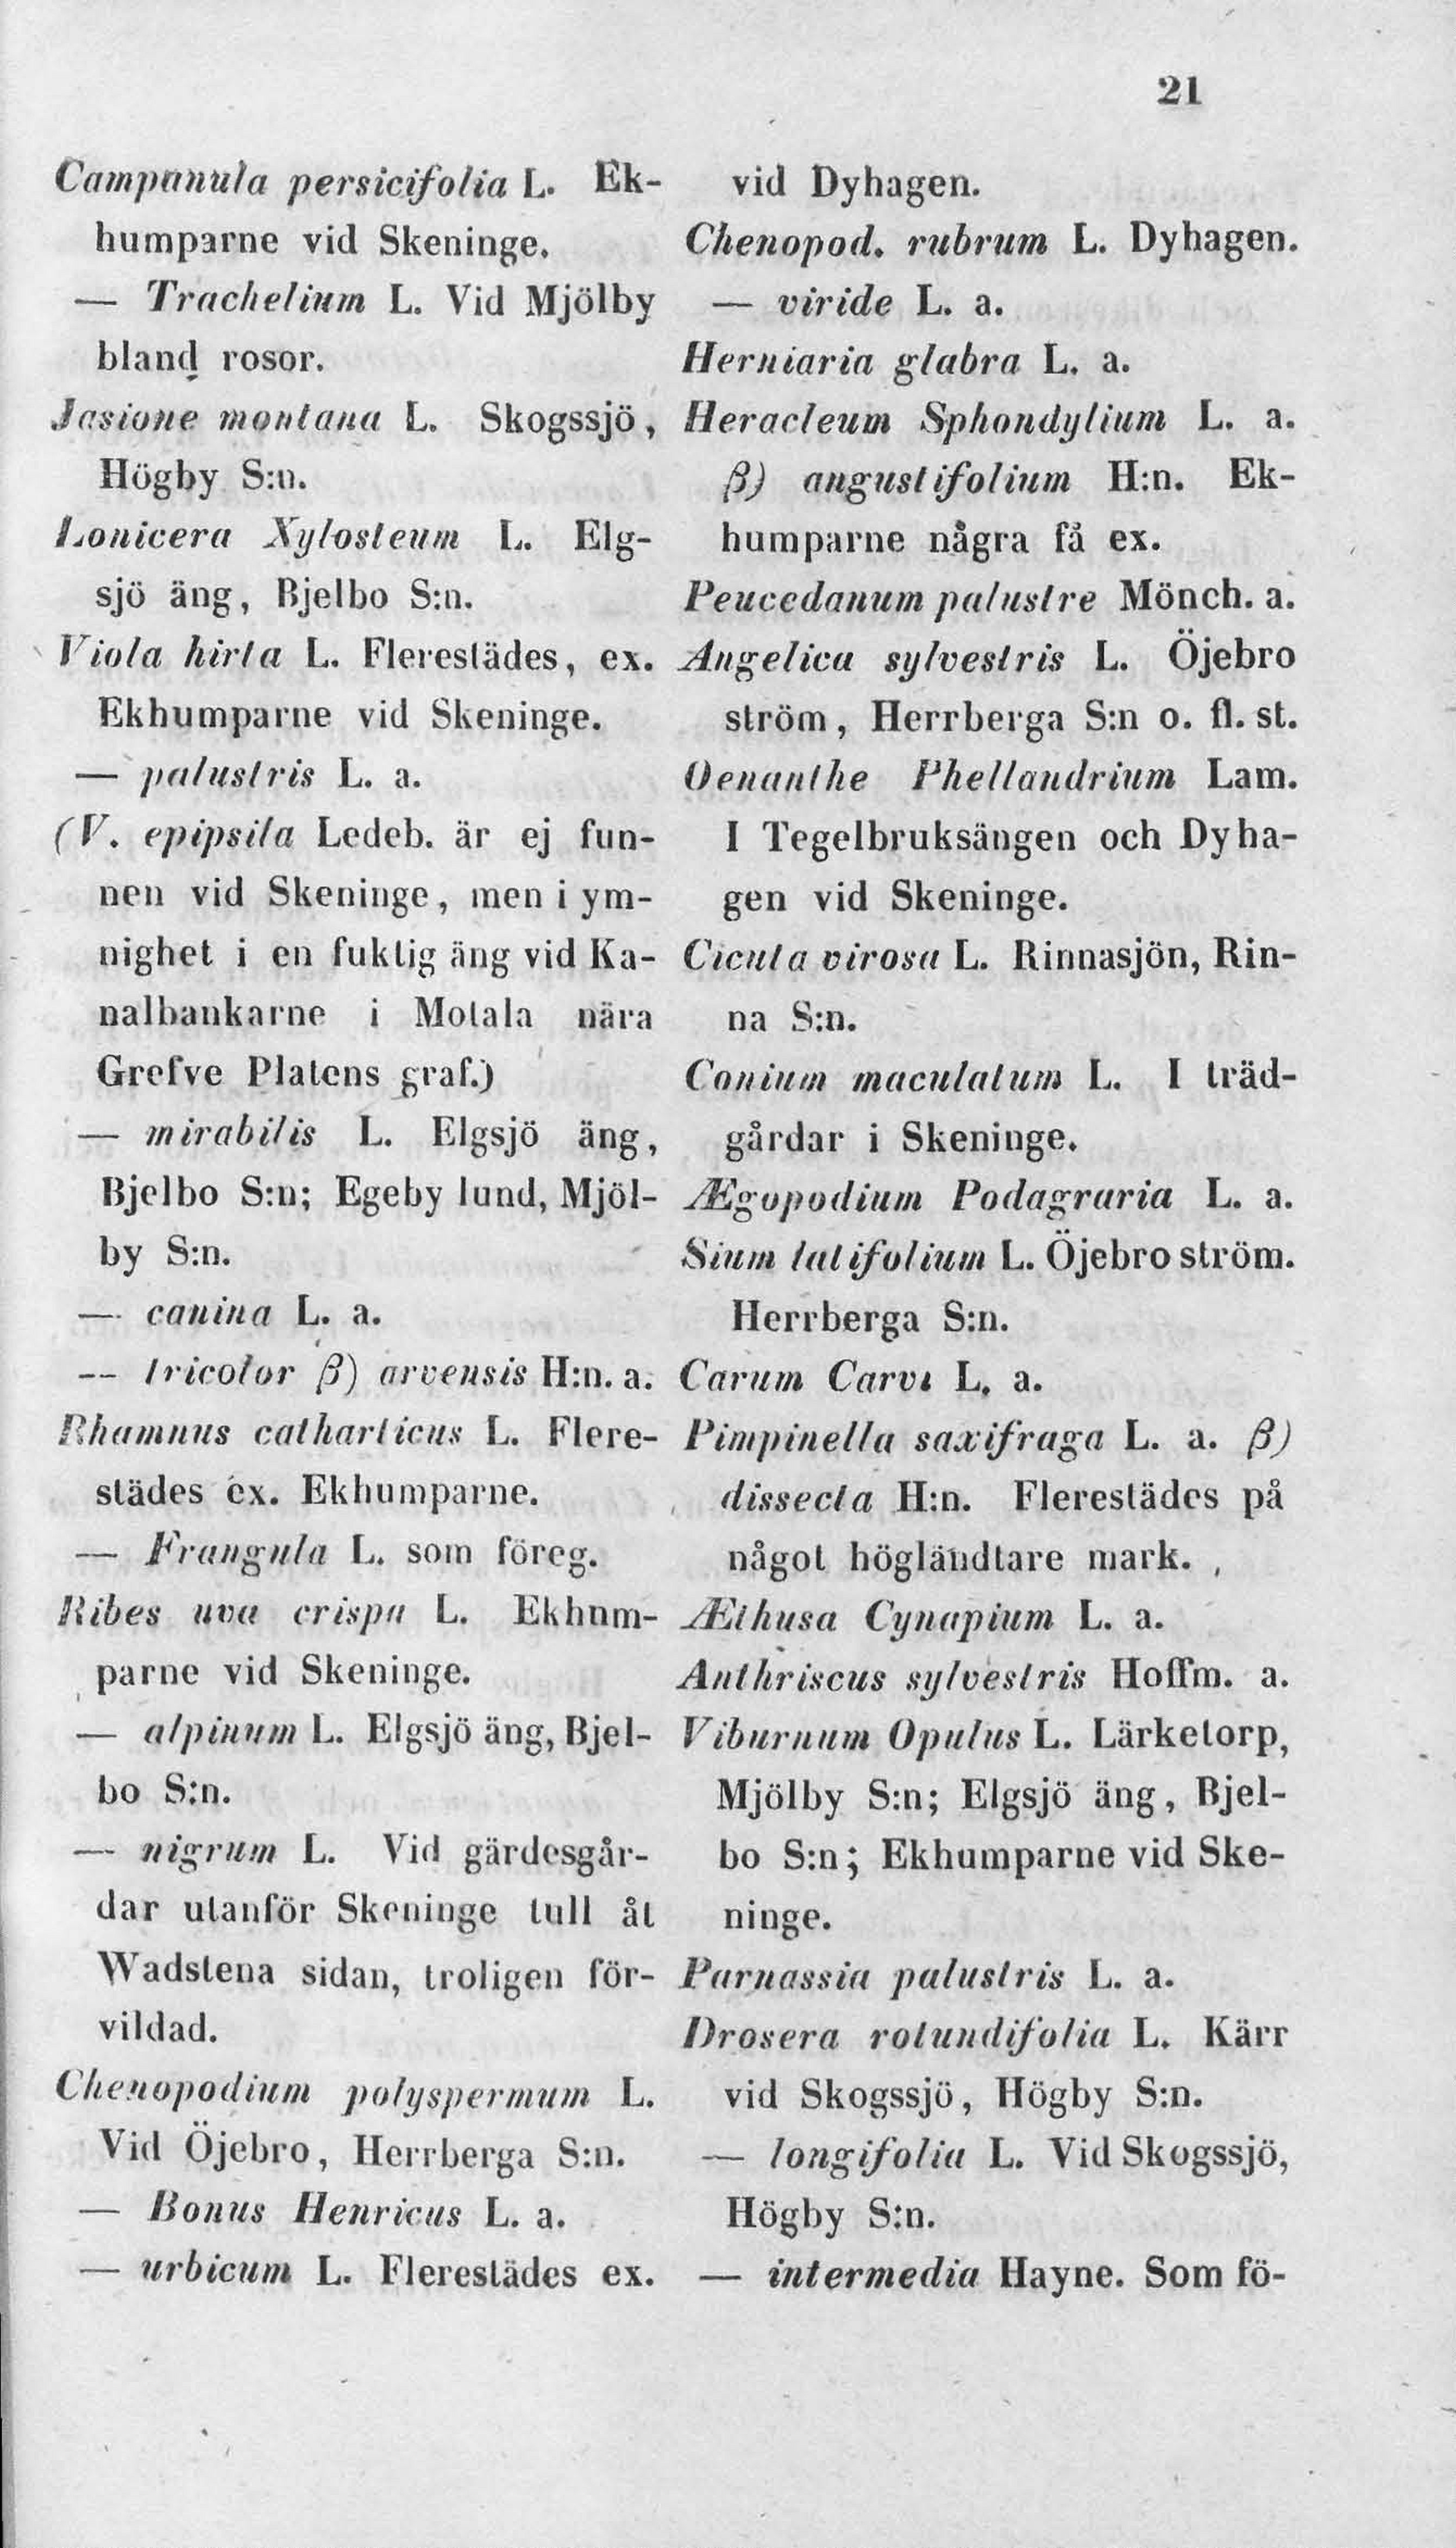 21
Campanula persicifolia L. Ek-
humparne vid Skeninge.
— Trachelium L. Vid Mjölby
bland rosor.
Jasione montana L. Skogssjö,
Högby S:n.
Lonicera Xylosteum L. Elg-
sjö äng, Bjelbo S:n.
Viola hirta L. Flerestädes, ex.
Ekhumparne vid Skeninge.
— palustris L. a.
(V. epipsila Ledeb. är ej fun-
nen vid Skeninge, men i ym-
nighet i en fuktig äng vid Ka-
nalbankarne i Motala nära
Grefve Platens graf.)
— mirabilis L. Elgsjö äng,
Bjelbo S:n; Egeby lund, Mjöl-
by S:n.
— canina L. a.
— tricolor β) arvensis H:n. a.
Rhamnus catharticus L. Flere-
städes ex. Ekhumparne.
— Frangula L. som föreg.
Ribes uva crispa L. Ekhum-
parne vid Skeninge.
— alpinum L. Elgsjö äng, Bjel-
bo S:n.
— nigrum L. Vid gärdesgår-
dar utanför Skeninge tull åt
Wadstena sidan, troligen för-
vildad.
Chenopodium polyspermum L.
Vid Öjebro, Herrberga S:n.
— Bonus Henricus L. a.
— urbicum L. Flerestädes ex.
vid Dyhagen.
Chenopod. rubrum L. Dyhagen.
— viride L. a.
Herniaria glabra L. a.
Heracleum Sphondylium L. a.
β) angustifolium H:n. Ek-
humparne några få ex.
Peucedanum palustre Mönch. a.
Angelica sylvestris L. Öjebro
ström, Herrberga S:n o. fl. st.
Oenanthe Phellandrium Lam.
I Tegelbruksängen och Dyha-
gen vid Skeninge.
Cicuta virosa L. Rinnasjön, Rin-
na S:n.
Conium maculatum L. I träd-
gårdar i Skeninge.
Ægopodium Podagraria L. a.
Sium latifolium L. Öjebro ström.
Herrberga S:n.
Carum Carvi L. a.
Pimpinella saxifraga L. a. β)
dissecta H:n. Flerestädes på
något högländtare mark.
Æthusa Cynapium L. a.
Anthriscus sylvestris Hoffm. a.
Viburnum Opulus L. Lärketorp,
Mjölby S:n; Elgsjö äng, Bjel-
bo S:n; Ekhumparne vid Ske-
ninge.
Parnassia palustris L. a.
Drosera rotundifolia L. Kärr
vid Skogssjö, Högby S:n.
— longifolia L. Vid Skogssjö,
Högby S:n.
— intermedia Hayne. Som fö-